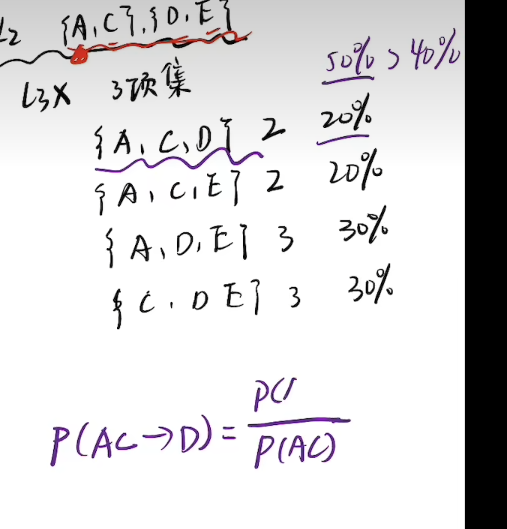 L2 {A,C},{D,E}
50% > 40%
L3X 3项集
{A,C,D} 2 20%
{A,C,E} 2 20%
{A,D,E} 3 30%
{C,D E} 3 30%
P(AC→D)= P(/ / P(AC)